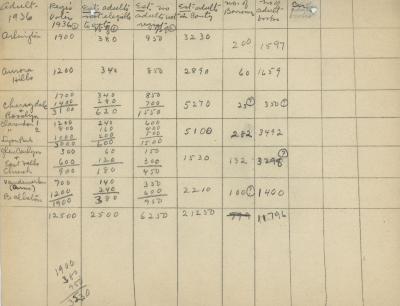 Adult- 1936
Reg'd Voters 1936
Est. adults not eligible to vote
Est. no adults not reg'd
Est. adults in County
no. of Borrow
no. of adult-books
Arlington 1900 380 950 3230 200 1597
Aurora Hills 1200 340 850 2890 60 1659
Cherrydale 1700 340 850
+ 1400 280 700
Rosslyn 3100 620 1550 5270 25 350
Clarendon 1 1200 240 600
" 2 800 160 400
Lyon Park 1000 200 500
3000 600 1500 5100 282 3492
Glencarlyn 300 60 150
+ East Falls Church 600 120 300
900 180 450 1530 132 3298
700 140 350
Ballston 1200 240 600
1900 380 950 2210 100 1400
12500 2500 6250 21250 11796
1900
380
950
3230